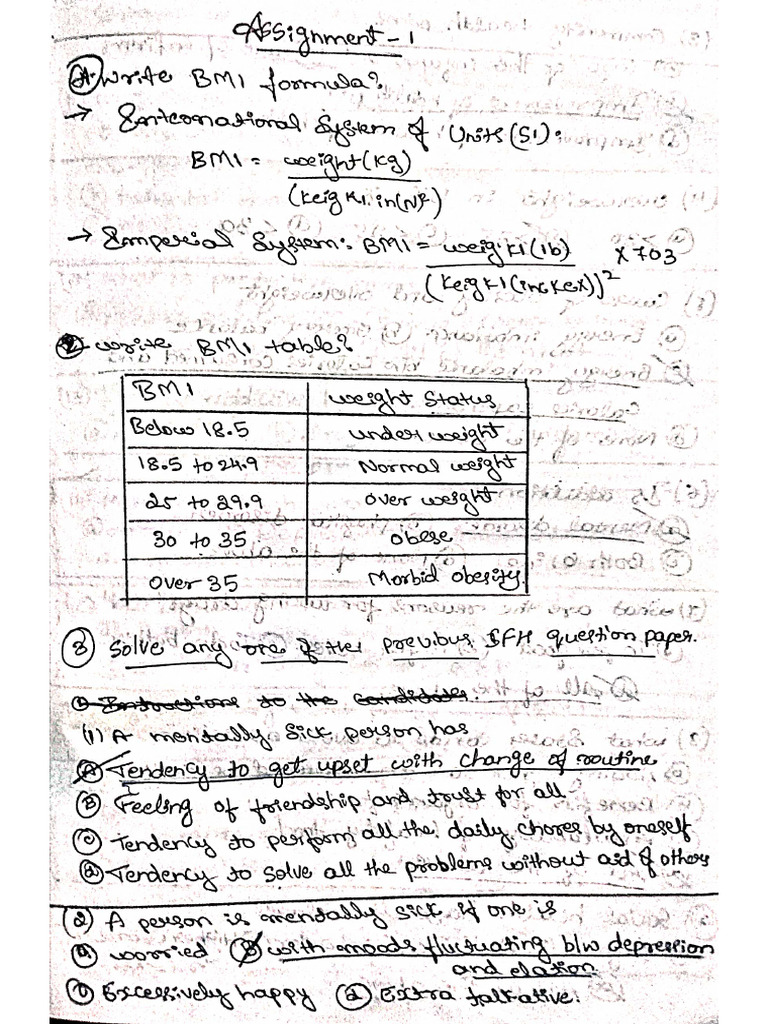 Assignment - 1
① Write BMI formula?
→ International System of Units (SI):
BMI = weight (kg)
(Height in (M)²
→ Imperial System: BMI = weight (lb) × 703
(height (inches))²
② Write BMI table?
BMI | weight Status
Below 18.5 | under weight
18.5 to 24.9 | Normal weight
25 to 29.9 | over weight
30 to 35 | obese
over 35 | Morbid obesity
③ Solve any one of the previous SFH question paper.
(1) A mentally sick person has
Ⓐ Tendency to get upset with change of routine
Ⓑ Feeling of friendship and trust for all
Ⓒ Tendency to perform all the daily chores by oneself
ⓓ Tendency to solve all the problems without aid of others
(2) A person is mentally sick if one is
ⓐ worried Ⓑ with moods fluctuating b/w depression
and elation
Ⓒ Excessively happy ⓓ Extra talkative.